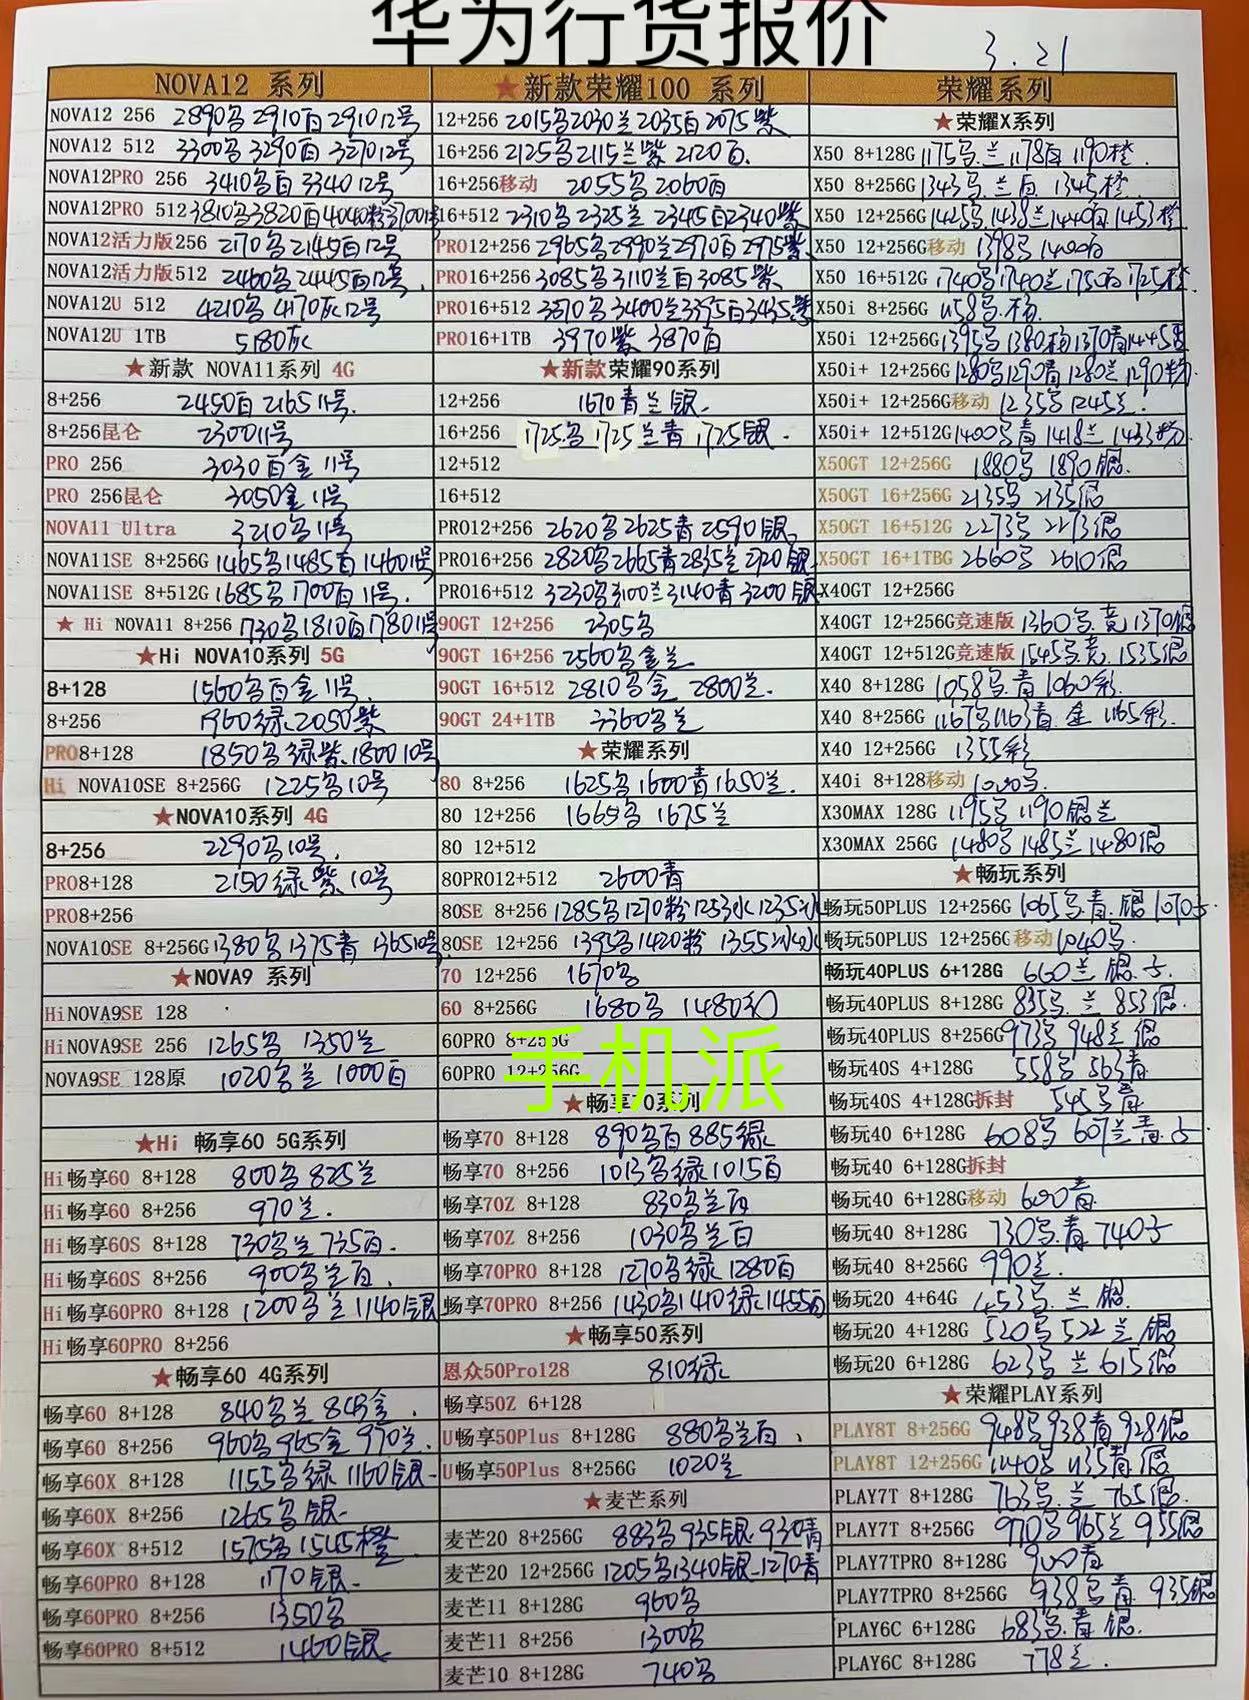 华为行货报价
3.21
NOVA12 系列
NOVA12 256 2890乌 2910百 2910 12号
NOVA12 512 3300乌 3290百 3270 12号
NOVA12PRO 256 3410乌百 3340 12号
NOVA12PRO 512 3810乌 3820百
NOVA12活力版256 2170乌 2145百 12号
NOVA12活力版512 2460乌 2445百 12号
NOVA12U 512 4210乌 4170灰 12号
NOVA12U 1TB 5180灰
★新款 NOVA11系列 4G
8+256 2450百 2165 11号
8+256昆仑 2300 11号
PRO 256 3030百金 11号
PRO 256昆仑 3050金 11号
NOVA11 Ultra 3210乌 11号
NOVA11SE 8+256G 1465乌 1485百 1460 11号
NOVA11SE 8+512G 1685乌 1700百 11号
★ Hi NOVA11 8+256 1730乌 1810百 1780 11号
★Hi NOVA10系列 5G
8+128 1560乌百金 11号
8+256 1960绿 2050紫
PRO8+128 1850乌绿紫 1800 10号
Hi NOVA10SE 8+256G 1225乌 10号
★NOVA10系列 4G
8+256 2290乌 10号
PRO8+128 2150绿紫 10号
PRO8+256
NOVA10SE 8+256G 1380乌 1375青 1365 10号
★NOVA9 系列
HiNOVA9SE 128
HiNOVA9SE 256 1265乌 1350兰
NOVA9SE 128原 1020乌兰 1000百
★Hi 畅享60 5G系列
Hi畅享60 8+128 800乌 825兰
Hi畅享60 8+256 970兰
Hi畅享60S 8+128 730乌兰 735百
Hi畅享60S 8+256 900乌兰百
Hi畅享60PRO 8+128 1200乌兰 1140银
Hi畅享60PRO 8+256
★畅享60 4G系列
畅享60 8+128 840乌兰 843金
畅享60 8+256 960乌 965金 970兰
畅享60X 8+128 1155乌绿 1160银
畅享60X 8+256 1265乌银
畅享60X 8+512 1575乌 1545橙
畅享60PRO 8+128 1170银
畅享60PRO 8+256 1350乌
畅享60PRO 8+512 1460银
★新款荣耀100 系列
12+256 2015乌 2030兰 2035百 2075紫
16+256 2125乌 2115兰紫 2120百
16+256移动 2055乌 2060百
16+512 2310乌 2325兰 2345百 2340紫
PRO12+256 2965乌 2990兰 2970百 2975紫
PRO16+256 3085乌 3110兰百 3085紫
PRO16+512 3370乌 3400兰 3395百 3435紫
PRO16+1TB 3970紫 3870百
★新款荣耀90系列
12+256 1670青兰银
16+256 1725乌 1725兰青 1725银
12+512
16+512
PRO12+256 2620乌 2625青 2590银
PRO16+256 2820乌 2665青 2835兰 2720银
PRO16+512 3230乌 3100兰 3140青 3200银
90GT 12+256 2305乌
90GT 16+256 2560乌金兰
90GT 16+512 2810乌金 2800兰
90GT 24+1TB 3360乌兰
★荣耀系列
80 8+256 1625乌 1600青 1650兰
80 12+256 1665乌 1675兰
80 12+512
80PRO12+512 2600青
80SE 8+256 1285乌 1270粉 1253水 1235冰
80SE 12+256 1395乌 1420粉 1355冰水
70 12+256 1670乌
60 8+256G 1680乌 1480幻
60PRO 8+256G
60PRO 12+256G
手机派
★畅享70系列
畅享70 8+128 890乌百 885绿
畅享70 8+256 1013乌绿 1015百
畅享70Z 8+128 830乌兰百
畅享70Z 8+256 1030乌兰百
畅享70PRO 8+128 1270乌绿 1280百
畅享70PRO 8+256 1430乌 1410绿 1455百
★畅享50系列
恩众50Pro128 810绿
畅享50Z 6+128
U畅享50Plus 8+128G 880乌兰百
U畅享50Plus 8+256G 1020兰
★麦芒系列
麦芒20 8+256G 883乌 935银 930青
麦芒20 12+256G 1205乌 1340银 1270青
麦芒11 8+128G 960乌
麦芒11 8+256 1300乌
麦芒10 8+128G 740乌
荣耀系列
★荣耀X系列
X50 8+128G 1175乌兰 1178百 1190橙
X50 8+256G 1343乌兰百 1345橙
X50 12+256G 1425乌 1438兰 1440百 1453橙
X50 12+256G移动 1398乌 1400百
X50 16+512G 1740乌 1740兰 1750百 1725橙
X50i 8+256G 1158乌杨
X50i 12+256G 1395乌 1380杨 1370青
X50i+ 12+256G 1280乌 1290青 1280兰 1290粉
X50i+ 12+256G移动 1235乌 1245兰
X50i+ 12+512G 1400乌青 1418兰 1433粉
X50GT 12+256G 1880乌 1890银
X50GT 16+256G 2135乌 2135银
X50GT 16+512G 2273乌 2273银
X50GT 16+1TBG 2660乌 2610银
X40GT 12+256G
X40GT 12+256G竞速版 1360乌竞 1370银
X40GT 12+512G竞速版 1545乌竞 1535银
X40 8+128G 1058乌青 1060彩
X40 8+256G 1167乌 1163青金 1165彩
X40 12+256G 1355彩
X40i 8+128移动 1020乌
X30MAX 128G 1195乌 1190银兰
X30MAX 256G 1480乌 1485兰 1480银
★畅玩系列
畅玩50PLUS 12+256G 1065乌青银
畅玩50PLUS 12+256G移动 1040乌
畅玩40PLUS 6+128G 660兰银
畅玩40PLUS 8+128G 835乌兰 853银
畅玩40PLUS 8+256G 973乌 948兰银
畅玩40S 4+128G 558乌 563青
畅玩40S 4+128G拆封 545乌青
畅玩40 6+128G 608乌 607兰青
畅玩40 6+128G拆封
畅玩40 6+128G移动 600青
畅玩40 8+128G 730乌青 740
畅玩40 8+256G 990兰
畅玩20 4+64G 453乌兰银
畅玩20 4+128G 520乌 522兰银
畅玩20 6+128G 623乌兰 615银
★荣耀PLAY系列
PLAY8T 8+256G 948乌 938青 928银
PLAY8T 12+256G 1140乌 1135青银
PLAY7T 8+128G 763乌兰 765银
PLAY7T 8+256G 970乌 965兰 955银
PLAY7TPRO 8+128G 900青
PLAY7TPRO 8+256G 938乌青 935银
PLAY6C 6+128G 683乌青银
PLAY6C 8+128G 778兰